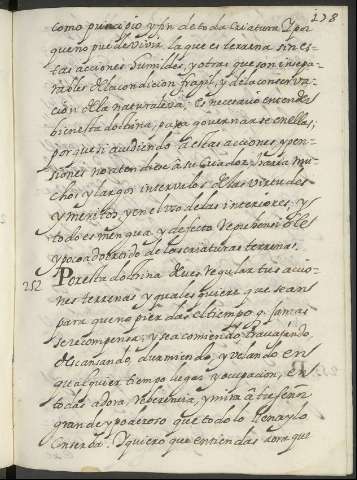 178
como principio y fin de toda Criatura. Y por
que no puede vivir la que es terrena sin es
tas acciones humildes, y otras que son insepa
rables de la condicion fragil, y de la conserva
ción de la naturaleza; es necesario entender
bien esta doctrina, para governarse en ellas;
porque si acudiendo a estas acciones y pen
siones no atendiese a su Criador haria mu
chos y largos intervalos de las virtudes
y meritos, y en el uso de las interiores, y
todo es mengua y defecto reprehensible
y poco advertido de las criaturas terrenas.
252 Por esta doctrina debes regular tus accio
nes terrenas y quales quiere que sean
para que no pierdas el tiempo q. jamas
se recompensa; y sea comiendo, trabajando,
descansando, durmiendo, y velando en
qualquier tiempo lugar y ocupacion, en
todas adora, reberencia, y mira à tu Señor
grande y poderoso que todo lo llena y lo
conserba. Y quiero que entiendas aora que